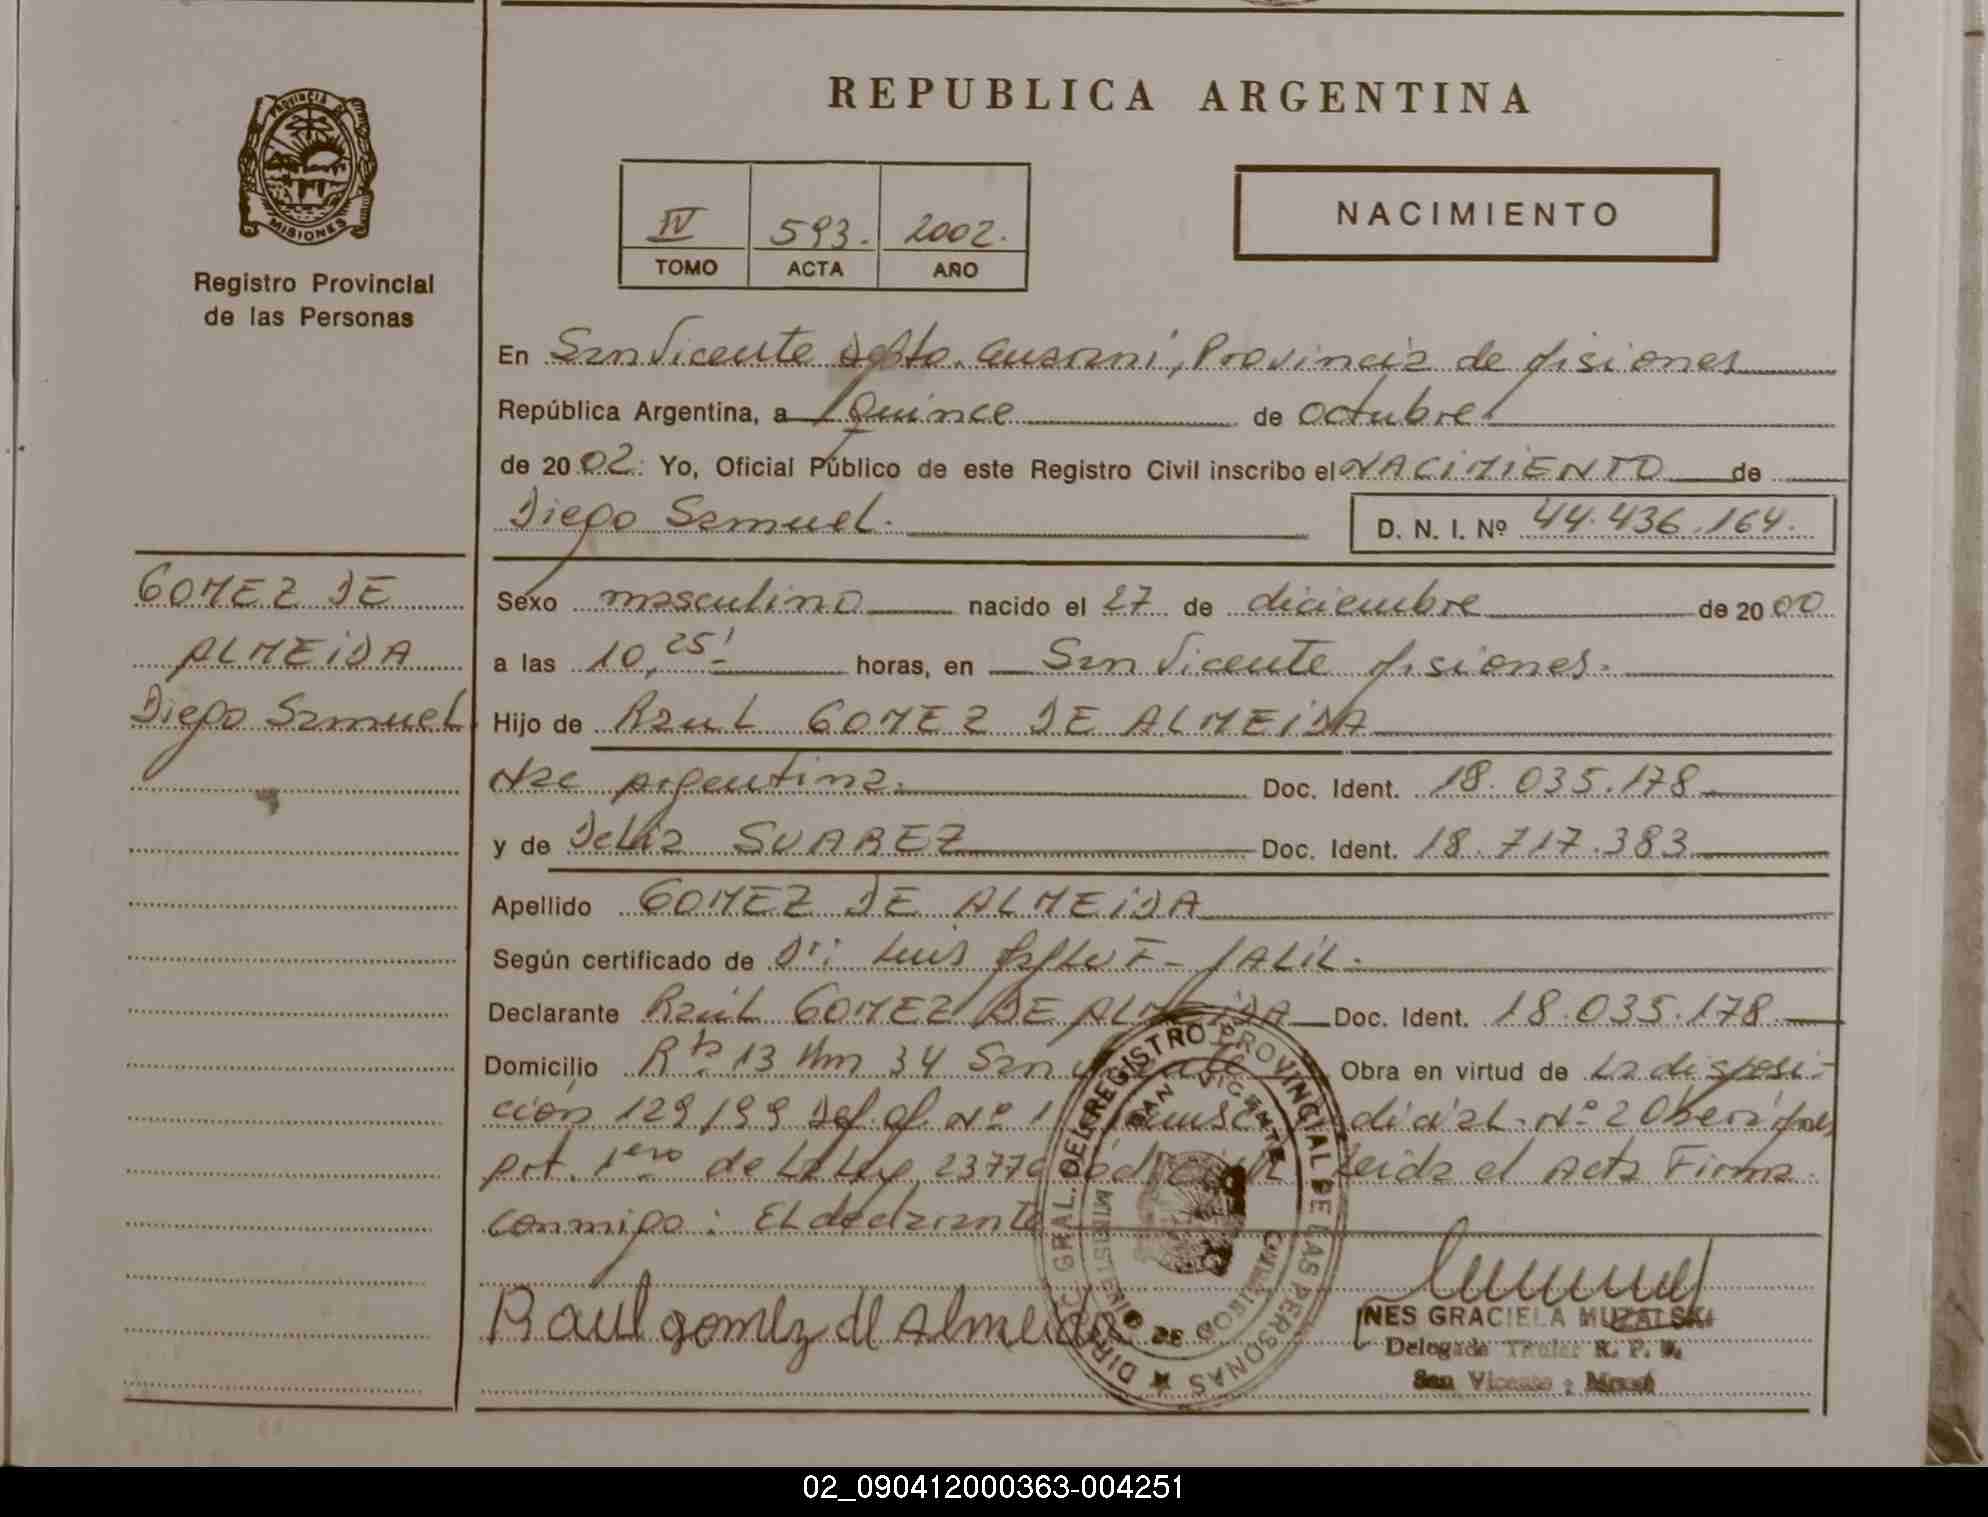 REPUBLICA ARGENTINA
PROVINCIA DE
MISIONES
Registro Provincial
de las Personas
IV 593. 2002.
TOMO ACTA AÑO
NACIMIENTO
En San Vicente Depto. Guarani, Provincia de Misiones
República Argentina, a Quince de octubre
de 2002. Yo, Oficial Público de este Registro Civil inscribo el NACIMIENTO de
Diego Samuel. D. N. I. Nº 44.436.164.
GOMEZ DE
ALMEIDA
Diego Samuel
Sexo masculino nacido el 27 de diciembre de 2000
a las 10,25' horas, en San Vicente Misiones.
Hijo de Raul GOMEZ DE ALMEIDA
Nac Argentina. Doc. Ident. 18.035.178
y de Delia SUAREZ Doc. Ident. 18.717.383
Apellido GOMEZ DE ALMEIDA
Según certificado de Dr: Luis F- JALIL.
Declarante Raúl GOMEZ DE ALMEIDA Doc. Ident. 18.035.178
Domicilio Rta 13 Km 34 San Vicente Obra en virtud de La disposi-
ción 129/99 Def. of. Nº 1 dicial Nº 2 Oberá Mnes
Art. 1ero de La Ley 2377 Leida el Acta Firma
conmigo: El declarante
Raul gomez de Almeida
DIREC. GRAL. DEL REGISTRO PROVINCIAL DE LAS PERSONAS
SAN VICENTE
MINISTERIO DE GOBIERNO
INES GRACIELA MUZALSKI
Delegada Titular R. P. P.
San Vicente - Mnes
02_090412000363-004251